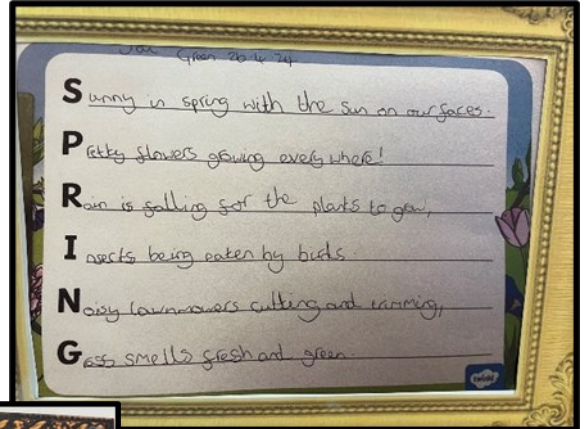 Green 26.4.24
Sunny in spring with the sun on our faces.
Pretty flowers growing everywhere!
Rain is falling for the plants to grow,
Insects being eaten by birds.
Noisy lawnmowers cutting and trimming,
Grass smells fresh and green.
twinkl